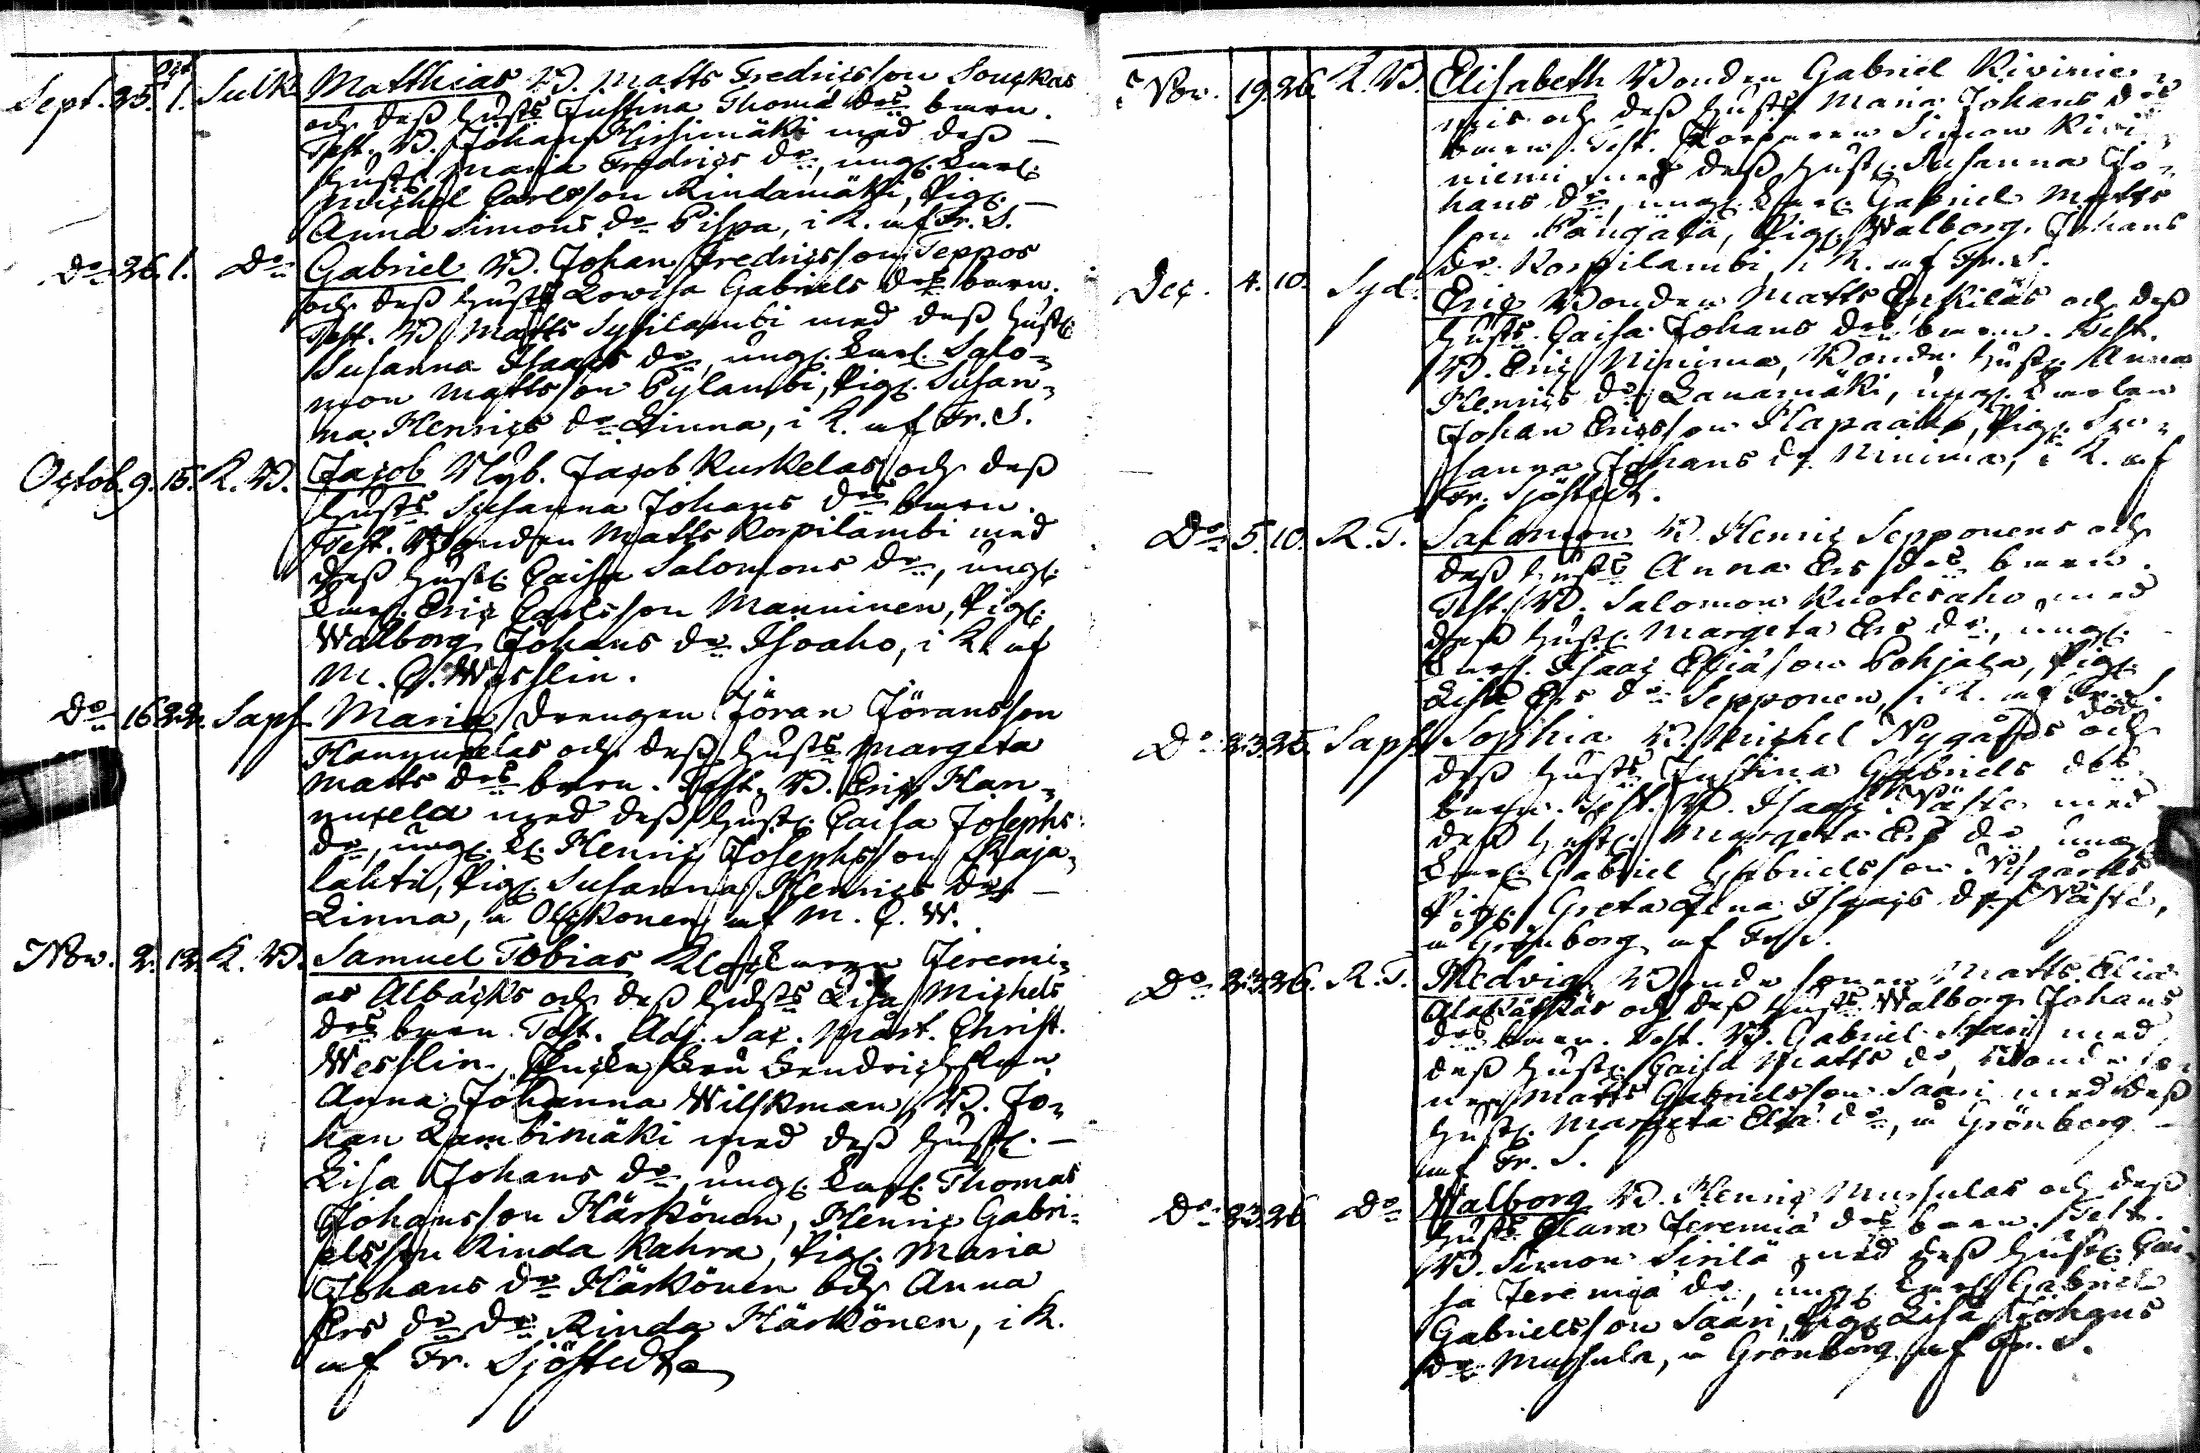 Sept. 25. Oct. 1. Sulk. Matthias B. Matts Fredricsson Soupkas
och deß hustrs Justina Thomæ drs barn.
Test. B. Johan med deß
hust. Maria Fredrics dr, ungk.
Michel Carlsson Rindamäki, Pig.
Anna Simons dr Pispa, i K. af Fr. S.
Do 26. 1. Do Gabriel B. Johan Fredricsson Teppos
och deß hustrs Lowisa Gabriels drs barn.
Test. B. Matts Sysilambi med deß hust.
Susanna Isaacs dr, ungk. Salo-
mon Mattsson Pylambi, Pig. Susan-
na Henrics dr Linna, i K. af Fr. S.
Octob. 9. 15. K. B. Jacob Nyb. Jacob Kuskelas och deß
hustrs Susanna Johans drs barn.
Test. Bonden Matts Korpilambi med
deß hust. Caisa Salomons dr, ungk.
Eric Carlsson Manninen, Pig.
Walborg Johans dr Isoaho, i K. af
M. C. Wesslin.
Do 16. 22. Saps. Maria drengen Jöran Jöransson
Hannuxelas och deß hustrs Margeta
Matts drs barn. Test. B. Eric Han-
nuxela med deß hust. Caisa Josephs
dr, ungk. Henric Josephsson Raja-
lahti, Pig. Susanna Henrics dr
Linna, a Olckonen af M. C. W.
Nov. 2. 12. K. B. Samuel Tobias Klockaren Jeremi-
as Albäcks och deß hustrs Lisa Michels
drs barn. Test. Adj. Sac. Mart. Christ.
Wesslin,
Anna Johanna Wilskman, B. Jo-
han Lambimäki med deß hust.
Lisa Johans dr, ungk. Thomas
Johansson Härkönen, Henric Gabri-
elsson Rinda Kahra, Pig. Maria
Johans dr Härkönen och Anna
Ers dr Do Rinda Härkönen, i K.
af Fr. Sjöstedt
Nov. 19. 26. K. B. Elisabeth Bonden Gabriel Rivinie-
mis och deß hustrs Maria Johans drs
barn. Test. Torparen Simon Rivi-
niemi med deß hust. Susanna Jo-
hans dr, ungk. Gabriel Matts
son Pig. Walborg Johans
dr Korpilambi, i K. af Fr. S.
Dec. 4. 10. Syd. Eric Bonden Matts Erkiläs och deß
hustrs Caisa Johans drs barn. Test.
B. Eric Ninima, Bonde hust. Anna
Henrics dr Lanamäki, ungk.
Johan Ericsson Pig. Su-
sanna Johans dr Ninima, i K. af
Fr. Sjöstedt.
Do 5. 10. R. T. Salomon B. Henric Sepponens och
deß hustrs Anna Ers drs barn.
Test. B. Salomon Kuotesaho med
deß hust. Margeta Ers dr, ungk.
Isaac Eliæson Pohjala, Pig.
Lisa Ers dr Sepponen, i K. af Fr. S.
Do 23. 25. Saps. Sophia B. Michel Nygårds och
deß hustrs Justina Gabriels drs
barn. Test. B. Isaac Näste med
deß hust. Margeta Ers dr, ungk.
Gabriel Gabrielsson Nygårds
Pig. Greta Lena Isaacs dr Näste,
a Grönborg af Fr. S.
Do 23. 26. R. T. Hedvig Bonde sonen Matts Eliæ
och deß hustrs Walborg Johans
drs barn. Test. B. Gabriel Saari med
deß hust. Caisa Matts dr, Bonde so-
nen Matts Gabrielsson Saari med deß
hust. Margeta Eliæ dr, a Grönborg
af Fr. S.
Do 23. 26. Do Walborg B. Henric Mussulas och deß
hustrs Clara Jeremiæ drs barn. Test.
B. Simon Sirilä med deß hust. Cai-
sa Jeremiæ dr, ungk. Gabriel
Gabrielsson Saari, Pig. Lisa Johans
dr Mussula, a Grönborg af Fr. S.